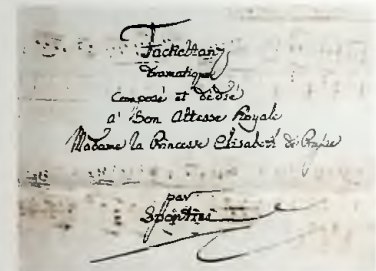 Fackeltanz
Dramatique
Composé et dédié
a' Son Altesse Royale
Madame la Princesse Elisabeth de Prusse
par
Spontini